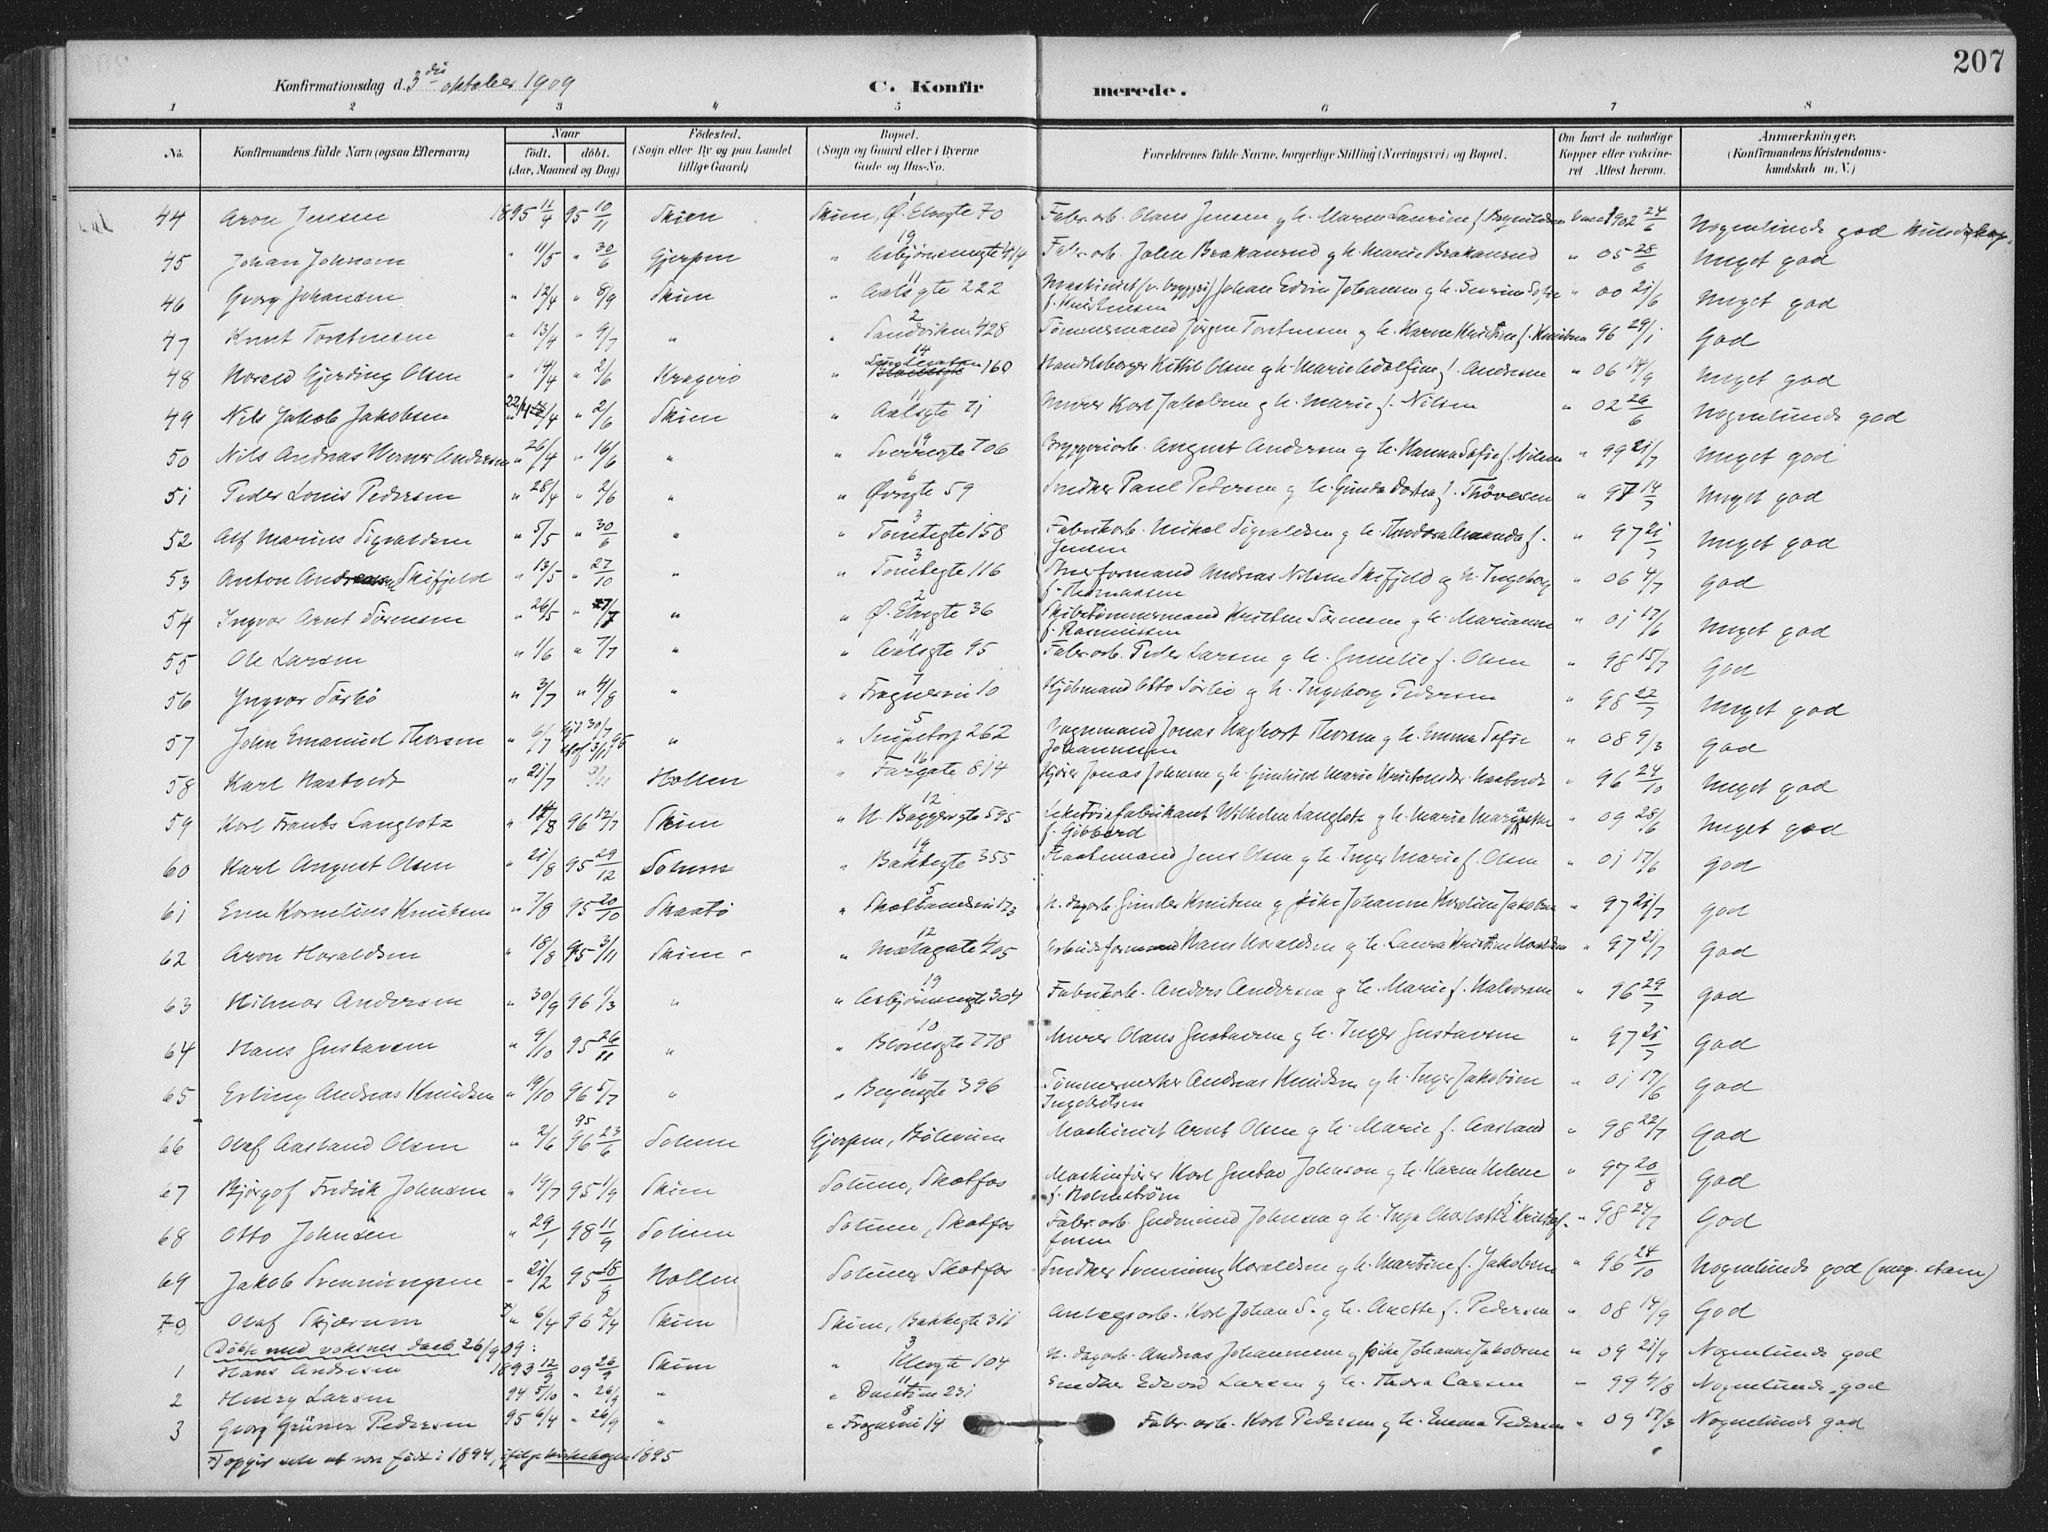 207
Konfirmationsdag d. 3die oktober 1909 C. Konfirmerede.
1 2 3 4 5 6 7 8
No. Konfirmandens fulde Navn (ogsaa Efternavn) Naar født. døbt. (Aar, Maaned og Dag) Fødested. (Sogn eller By og paa Landet tillige Gaard) Bopæl. (Sogn og Gaard eller i Byerne Gade og Hus-No. Forældrenes fulde Navne, borgerlige Stilling (Næringsvei) og Bopæl. Om havt de naturlige Kopper eller vakcineret Attest herom. Anmærkninger. (Konfirmandens Kristendomskundskab m. V.)
44 Aron Jensen 1895 11/4 95 10/11 Skien Skien, Ø. Elvegte 70 Fabr.arb. Olaus Jensen og h. Maren Laurine f. 1902 24/6 Nogenlunde god
45 Johan Johnsen " 11/5 " 30/6 Gjerpen " Asbjørnsensgte 414 Fabr.arb. John Brakanrud og h. Marie Brakanrud " 05 28/6 Meget god
46 Georg Johansen " 12/4 " 8/9 Skien " Aalsgte 222 Maskinist (v. bryggeri) Johan Edvin Johansen og h. Severine Sofie f. Kristensen " 00 21/6 Meget god
47 Knut Torstensen " 13/4 " 9/7 " " Sandviken 428 Tømmermand Jørgen Torstensen og h. Karen Kristine f. Knudsen 96 29/1 God
48 Harald Gjerding Olsen " 14/4 " 2/6 Kragerø " 160 Handelsborger Kittil Olsen og h. Marie Adolfine f. Andersen " 06 14/9 Meget god
49 Nils Jakob Jakobsen 22/4 " 2/6 Skien " Aalsgte 71 Murer Karl Jakobsen og h. Marie f. Nilsen " 02 26/6 Nogenlunde god
50 Nils Andreas Werner Andersen " 26/4 " 16/6 " " Sverresgte 706 Bryggeriarb. August Andersen og h. Hanna Sofie f. Nilsen " 99 21/7 Meget god
51 Peder Louis Pedersen " 28/4 " 2/6 " " Øvregte 59 Snedker Paul Pedersen og h. Gunda Dortea f. Thovesen " 97 14/7 Meget god
52 Alf Marius Sigvaldsen " 5/5 " 30/6 " " Tomtegte 158 Fabrikarb. Mikal Sigvaldsen og h. Teodora Amanda f. Jensen " 97 21/7 Meget god
53 Anton Andreasen Skifjeld " 13/5 " 27/10 " " Tomtegte 116 Andreas Nilsen Skifjeld og h. Ingeborg f. Thomassen " 06 4/7 God
54 Ingvar Arnt Sørensen " 26/5 " 7/7 " " Ø. Elvegte 36 Skibstømmermand Kristen Sørensen og h. Marianne f. Rasmussen " 01 17/6 Meget god
55 Ole Larsen " 1/6 " 7/7 " " Aalsgte 95 Fabr.arb. Peder Larsen og h. Gunelie f. Olsen " 98 15/7 God
56 Yngvar Sørbø " 3/7 " 4/8 " " Frognervei 10 Kjøbmand Otto Sørbø og h. Ingeborg Pedersen " 98 22/7 Meget god
57 John Emanuel Thorsen " 6/7 30/7 3/11 95 " " Snipetorp 262 Vognmand Jonas Thorsen og h. Emma Sofie Johannesen " 08 9/3 God
58 Karl Naatvedt " 21/7 3/11 Hollen " Torgate 814 Kjører Jonas Johnsen og h. Gunhild Marie Kristensdtr. Naatvedt " 96 24/10 Meget god
59 Karl Frants Langlotz " 14/8 96 12/7 Skien " N. Baggersgte 595 Wilhelm Langlotz og h. Maria Margrethe f. Göbberd " 09 28/6 Meget god
60 Karl August Olsen " 21/8 95 29/12 Solum " Bakkegte 355 Jens Olsen og h. Inger Marie f. Olsen " 01 17/6 God
61 Even Kornelius Knudsen " 7/8 95 20/10 Skaatø " Skotlandsvei 123 Gunder Knutsen og pike Johanne Karoline Jakobsen " 97 21/7 God
62 Aron Haraldsen " 18/8 95 3/11 Skien " Mælagate 405 Arbeidsformand Hans Haraldsen og h. Laura Kristine Haraldsen " 97 21/7 God
63 Hilmar Andersen " 30/9 96 1/3 " " Asbjørnsensgte 304 Fabrikarb. Anders Andersen og h. Marie f. Halvorsen " 96 29/7 God
64 Hans Gustavsen " 9/10 95 26/11 " " Blomstgte 778 Murer Olaus Gustavsen og h. Inger Gustavsen " 97 21/7 God
65 Erling Andreas Knudsen " 19/10 96 5/7 " " Beyersgte 396 Tømmermester Andreas Knudsen og h. Inger Jakobine Ingebretsen " 01 17/6 God
66 Olaf Aasland Olsen " 2/6 95 96 23/6 Solum Gjerpen, Bølevium Maskinist Arnt Olsen og h. Marie f. Aasland " 98 22/7 God
67 Bjørgof Fredrik Johnsen " 19/7 95 1/9 Skien Solum, Skotfos Maskinfører Karl Gustav Johnson og h. Karen Helene f. Holmstrøm " 97 20/8 God
68 Otto Johnsen " 29/1 98 11/9 Solum Solum, Skotfos Fabr.arb. Gudmund Johnsen og h. Inga Charlotte Kristofersen " 98 24/7 God
69 Jakob Svenningsen " 21/2 95 18/8 Hollen Solum, Skotfos Snedker Svenning Haraldsen og h. Martine f. Jakobsen " 96 24/10 Nogenlunde god (meg. stam)
70 Olaf Skjærum " 6/4 96 2/4 Skien Skien, Bakkegte 311 Anlægsarb. Karl Johan S. og h. Anette f. Pedersen " 08 14/9 God
Døbte med voksnes daab 26/9 09:
1 Hans Andersen 1893 12/9 09 26/9 Skien " Ø. Elvegte 104 N. dagarb. Andreas Johannesen og pike Johanne Jakobsen " 09 21/9 Nogenlunde god
2 Henry Larsen 94 5/10 " 26/9 " " Duestien 231 Snedker Edvard Larsen og h. Thora Larsen " 99 4/8 Nogenlunde god
3 Georg Grüner Pedersen 95 6/4 " 26/9 " " Frognervei 14 Fabr. arb. Karl Pedersen og h. Emma Pedersen " 09 17/3 Nogenlunde god
opgir selv at være født i 1894, ifølge kirkebogen 1895